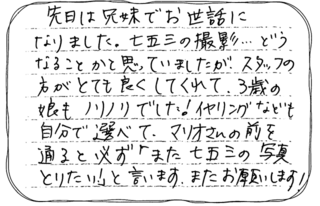 先日は兄妹でお世話に
なりました。七五三の撮影…どう
なることかと思っていましたが、スタッフの
方がとても良くしてくれて、3歳の
娘もノリノリでした!イヤリングなども
自分で選べて、マリオさんの前を
通ると必ず「また七五三の写真
とりたい!」と言います。またお願いします!